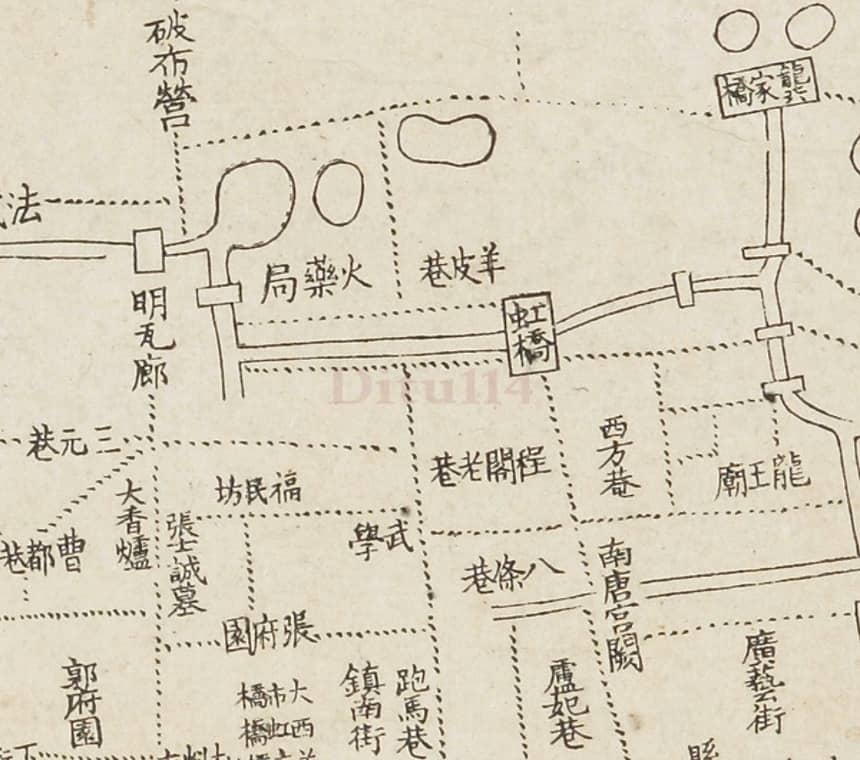 破布營
龍家橋
法
火藥局
羊皮巷
明瓦廊
虹橋
Ditu114
三元巷
大香爐
福民坊
程閣老巷
西方巷
龍王廟
曹都巷
張士誠墓
武學
八條巷
南唐宮闕
張府園
郭府園
大市橋
西虹橋
鎮南街
跑馬巷
盧妃巷
廣藝街
縣